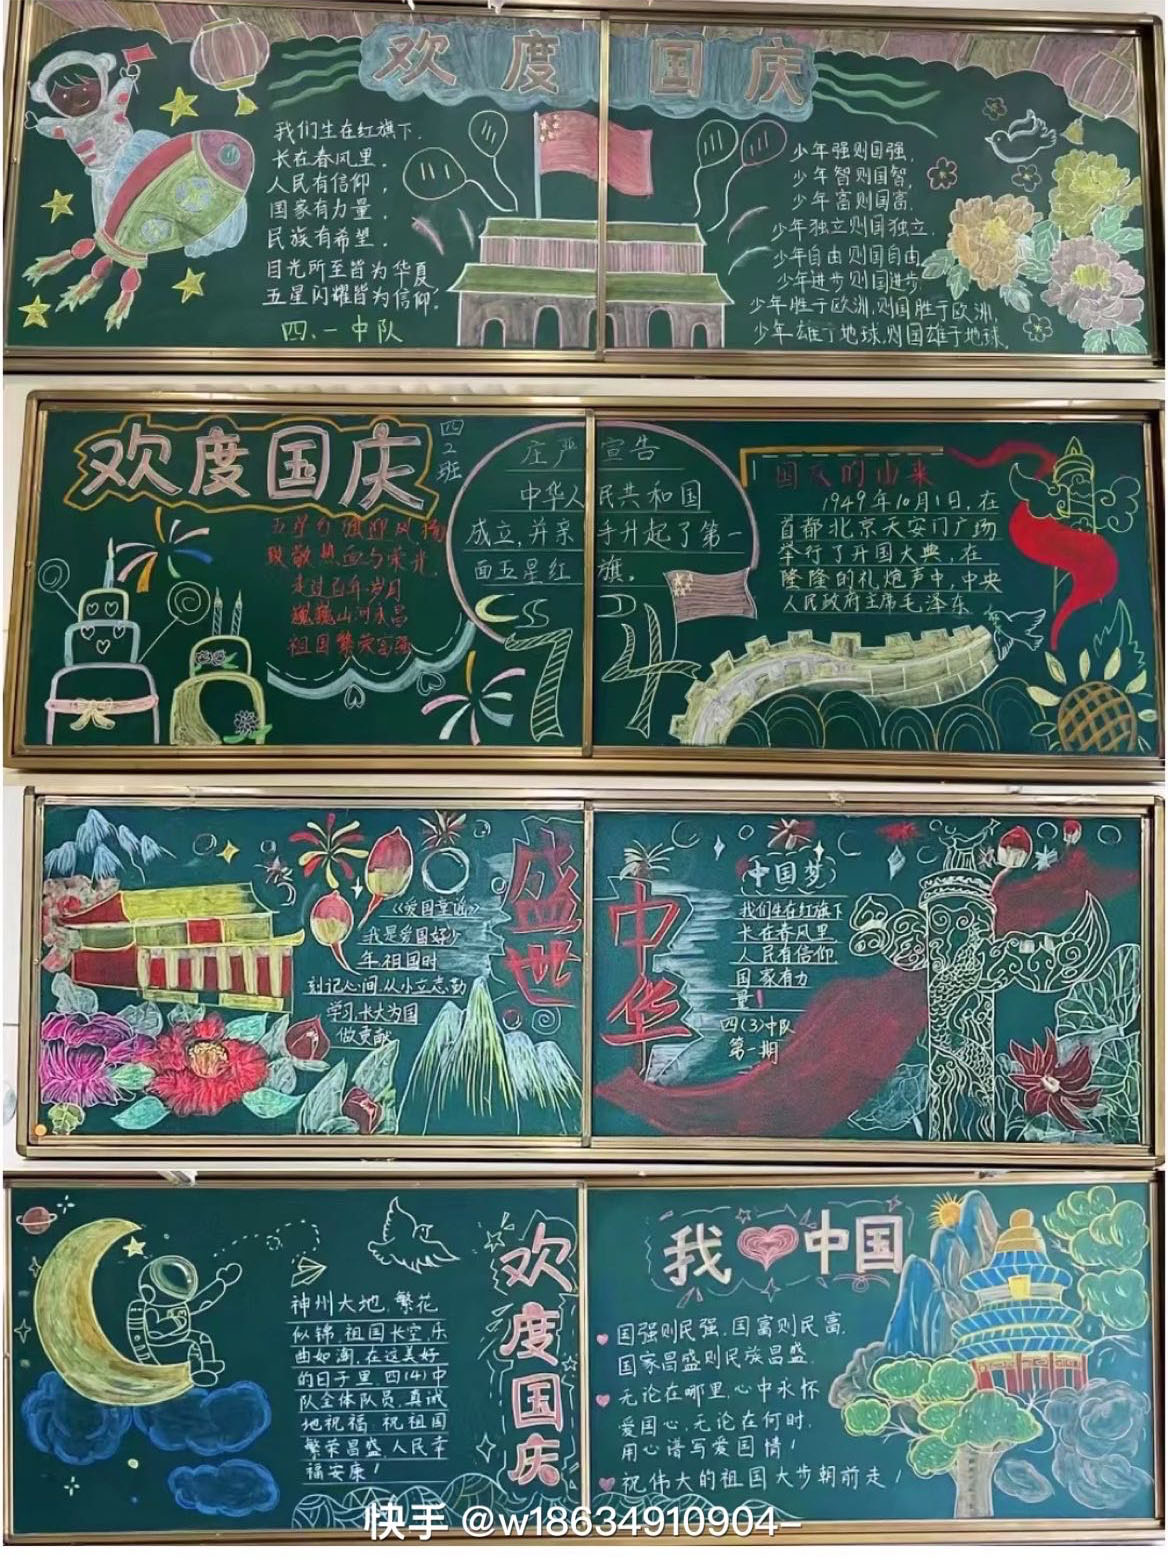 欢度国庆
我们生在红旗下，
长在春风里。
人民有信仰，
国家有力量，
民族有希望。
目光所至皆为华夏，
五星闪耀皆为信仰。
四、一中队
少年强则国强，
少年智则国智，
少年富则国富，
少年独立则国独立，
少年自由则国自由，
少年进步则国进步，
少年胜于欧洲，则国胜于欧洲，
少年雄于地球，则国雄于地球。
欢度国庆
四2班
五星红旗迎风扬
致敬热血与荣光
走过百年岁月
巍巍山河永昌
祖国繁荣富强
庄严宣告
中华人民共和国
成立，并亲手升起了第一
面五星红旗。
74
国庆的由来
1949年10月1日，在
首都北京天安门广场
举行了开国大典，在
隆隆的礼炮声中，中央
人民政府主席毛泽东
《爱国童谣》
我是爱国好少
年祖国时
刻记心间从小立志勤
学习长大为国
做贡献
盛世
中华
中国梦
我们生在红旗下
长在春风里
人民有信仰
国家有力
量！
四(3)中队
第一期
神州大地，繁花
似锦，祖国长空，乐
曲如潮，在这美好
的日子里，四(4)中
队全体队员，真诚
地祝福，祝祖国
繁荣昌盛，人民幸
福安康！
欢度国庆
我中国
国强则民强，国富则民富，
国家昌盛则民族昌盛。
无论在哪里，心中永怀
爱国心，无论在何时，
用心谱写爱国情！
祝伟大的祖国大步朝前走！
快手 @w18634910904-